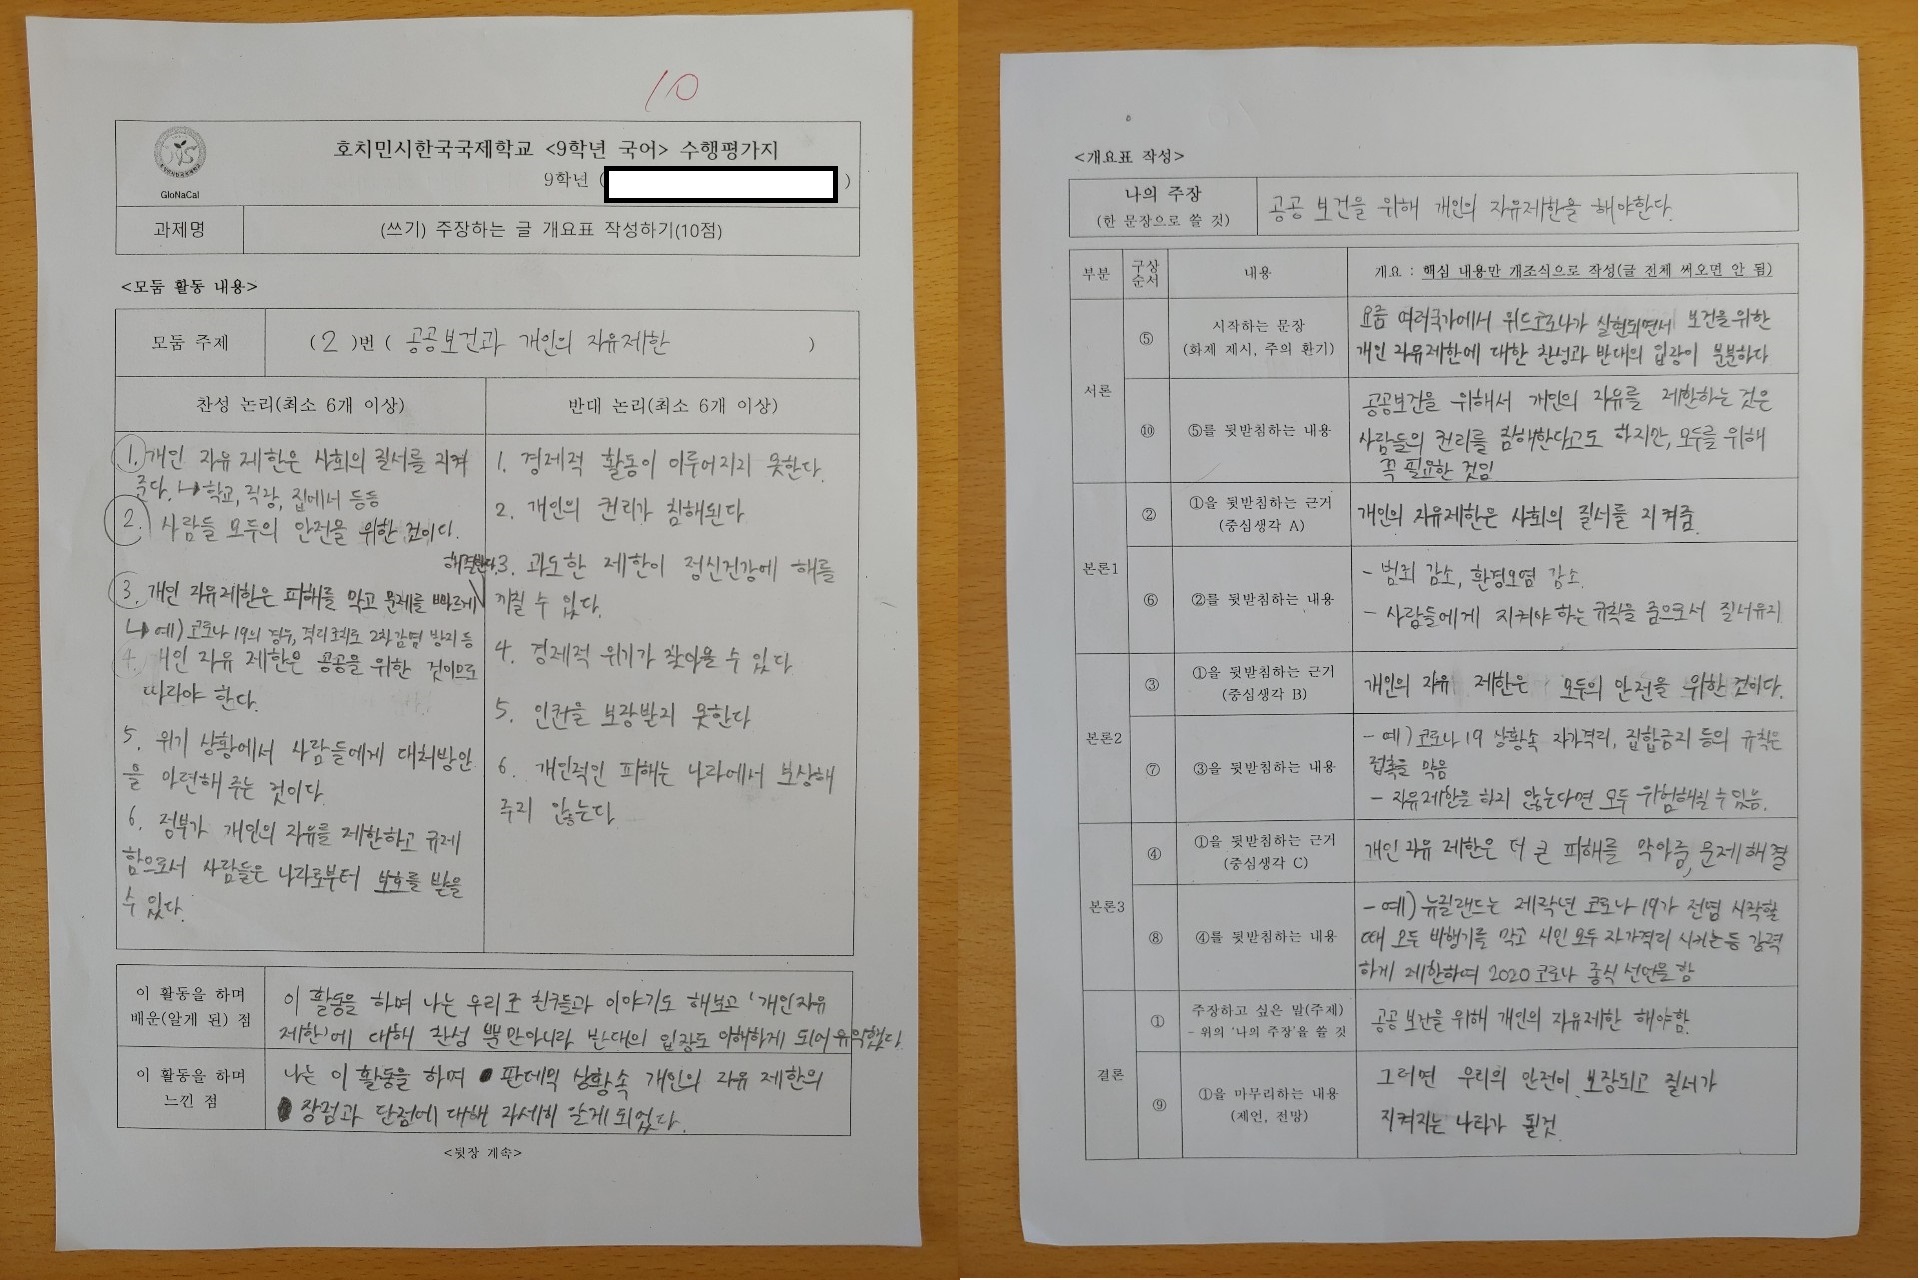 10
호치민시한국국제학교 <9학년 국어> 수행평가지
9학년 ( )
GloNaCal
과제명
(쓰기) 주장하는 글 개요표 작성하기(10점)
<모둠 활동 내용>
모둠 주제
( 2 )번 ( 공공보건과 개인의 자유제한 )
찬성 논리(최소 6개 이상)
1. 개인 자유 제한은 사회의 질서를 지켜
준다. ↳ 학교, 직장, 집에서 등등
2. 사람들 모두의 안전을 위한 것이다.
3. 개인 자유제한은 피해를 막고 문제를 빠르게
해결한다.
↳ 예) 코로나 19의 경우, 격리조치로 2차감염 방지 등
4. 개인 자유 제한은 공공을 위한 것이므로
따라야 한다.
5. 위기 상황에서 사람들에게 대처방안
을 마련해 주는 것이다.
6. 정부가 개인의 자유를 제한하고 규제
함으로서 사람들은 나라로부터 보호를 받을
수 있다.
반대 논리(최소 6개 이상)
1. 경제적 활동이 이루어지지 못한다.
2. 개인의 권리가 침해된다
3. 과도한 제한이 정신건강에 해를
끼칠 수 있다.
4. 경제적 위기가 찾아올 수 있다
5. 인권을 보장받지 못한다
6. 개인적인 피해는 나라에서 보상해
주지 않는다
이 활동을 하며
배운(알게 된) 점
이 활동을 하며 나는 우리 조 친구들과 이야기도 해보고 '개인자유
제한'에 대해 찬성 뿐만아니라 반대의 입장도 이해하게 되어 유익했다.
이 활동을 하며
느낀 점
나는 이 활동을 하며 판데믹 상황속 개인의 자유 제한의
장점과 단점에 대해 자세히 알게 되었다.
<뒷장 계속>
<개요표 작성>
나의 주장
(한 문장으로 쓸 것)
공공 보건을 위해 개인의 자유제한을 해야한다.
부분
구상
순서
내용
개요 : 핵심 내용만 개조식으로 작성(글 전체 써오면 안 됨)
서론
⑤
시작하는 문장
(화제 제시, 주의 환기)
요즘 여러국가에서 위드코로나가 실현되면서 보건을 위한
개인 자유제한에 대한 찬성과 반대의 입장이 분분하다
⑩
⑤를 뒷받침하는 내용
공공보건을 위해서 개인의 자유를 제한하는 것은
사람들의 권리를 침해한다고도 하지만, 모두를 위해
꼭 필요한 것임
본론1
②
①을 뒷받침하는 근거
(중심생각 A)
개인의 자유제한은 사회의 질서를 지켜줌.
⑥
②를 뒷받침하는 내용
- 범죄 감소, 환경오염 감소
- 사람들에게 지켜야 하는 규칙을 줌으로서 질서유지
본론2
③
①을 뒷받침하는 근거
(중심생각 B)
개인의 자유 제한은 모두의 안전을 위한것이다.
⑦
③을 뒷받침하는 내용
- 예) 코로나 19 상황속 자가격리, 집합금지 등의 규칙은
접촉을 막음
- 자유제한을 하지 않는다면 모두 위험해질 수 있음.
본론3
④
①을 뒷받침하는 근거
(중심생각 C)
개인 자유 제한은 더 큰 피해를 막아줌, 문제해결
⑧
④를 뒷받침하는 내용
- 예) 뉴질랜드는 제작년 코로나 19가 전염 시작할
때 모두 비행기를 막고 시민 모두 자가격리 시키는 등 강력
하게 제한하여 2020 코로나 종식 선언을 함
결론
①
주장하고 싶은 말(주제)
- 위의 '나의 주장'을 쓸 것
공공 보건을 위해 개인의 자유제한 해야함.
⑨
①을 마무리하는 내용
(제언, 전망)
그러면 우리의 안전이 보장되고 질서가
지켜지는 나라가 될것.